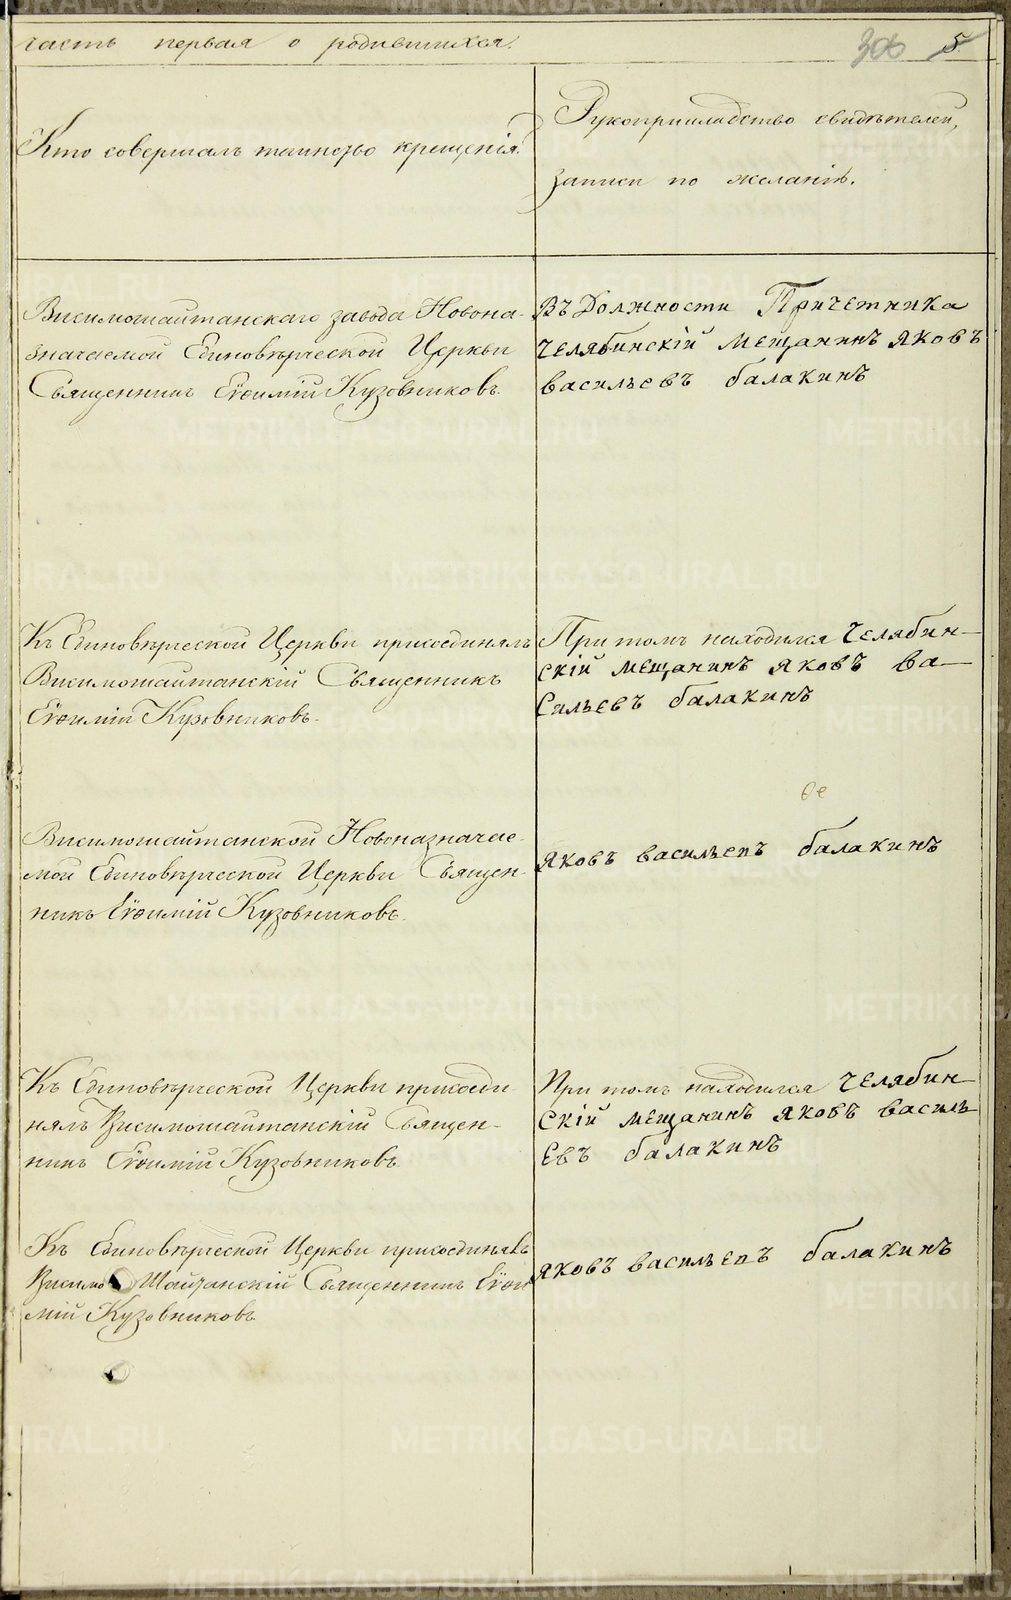 часть первая о родившихся.
306 5
Кто совершалъ таинство крещенія.
Рукоприкладство свидѣтелей,
записи по желанію.
Висимошайтанскаго завода Новона-
значаемой Единовѣрческой Церкви
Священникъ Евѳимій Кузовниковъ.
Въ Должности Причетника
челябинскій мещанинъ яковъ
васильевъ балакинъ
Къ Единовѣрческой Церкви присоединялъ
Висимошайтанскій Священникъ
Евѳимій Кузовниковъ.
При томъ находился челябин-
скій мещанинъ яковъ ва-
сильевъ балакинъ
Висимошайтанской Новоназначае-
мой Единовѣрческой Церкви Священ-
никъ Евѳимій Кузовниковъ.
яковъ васильевъ балакинъ
Къ Единовѣрческой Церкви присоеди
нялъ Висимошайтанскій Священ-
никъ Евѳимій Кузовниковъ
При томъ находился челябин-
скій мещанинъ яковъ василь-
евъ балакинъ
Къ Единовѣрческой Церкви присоединялъ
Висимо Шайтанскій Священникъ Евѳи
мій Кузовниковъ
яковъ васильевъ балакинъ
METRIKI.GASO-URAL.RU